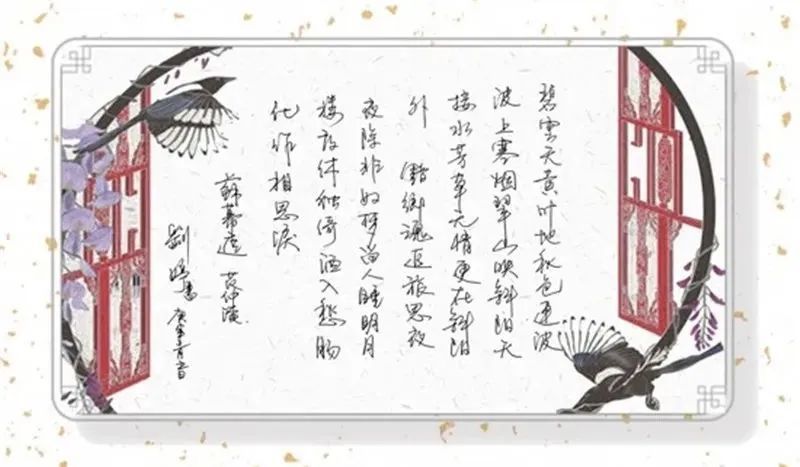 碧雲天黄叶地秋色连波
波上寒烟翠山映斜阳天
接水芳草无情更在斜阳
外 黯鄉魂追旅思夜
夜除非好梦留人睡明月
楼高休独倚酒入愁肠
化作相思淚
蘇幕遮 范仲淹
劉